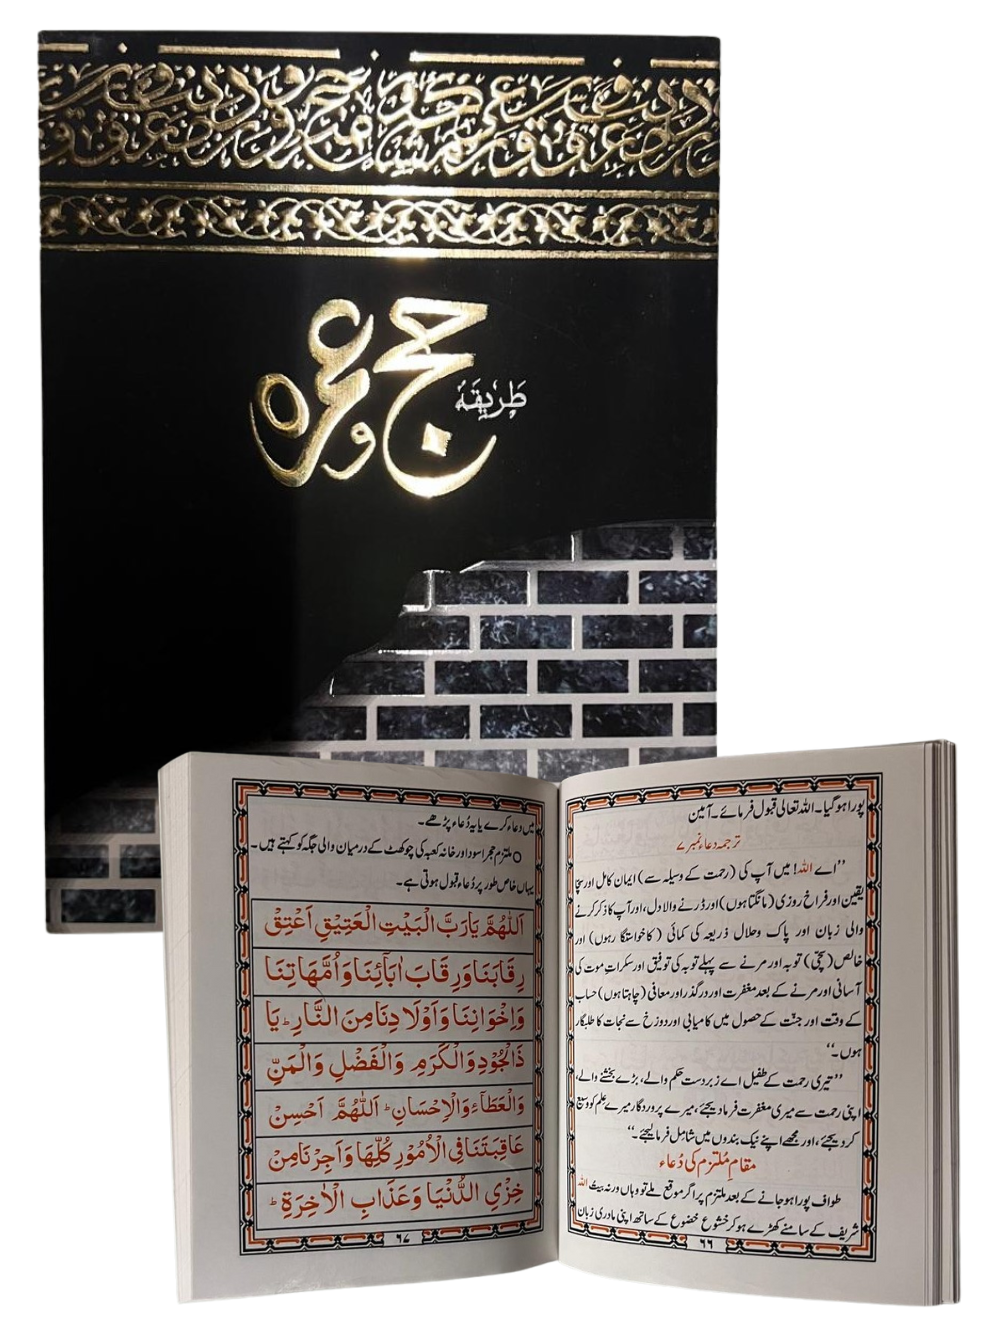 طَرِيقَهٔ
حج و عمرہ
پورا ہوگیا۔ اللہ تعالیٰ قبول فرمائے۔ آمین
ترجمہ دعاء نمبر ۷
’’اے اللہ! میں آپ کی (رحمت کے وسیلہ سے) ایمان کامل اور سچا
یقین اور فراخ روزی (مانگتا ہوں) اور ڈرنے والا دل، اور آپ کا ذکر کرنے
والی زبان اور پاک وحلال ذریعہ کی کمائی (کا خواستگار ہوں) اور
خالص (سچی) توبہ اور مرنے سے پہلے توبہ کی توفیق اور سکراتِ موت کی
آسانی اور مرنے کے بعد مغفرت اور درگذر اور معافی (چاہتا ہوں) حساب
کے وقت اور جنّت کے حصول میں کامیابی اور دوزخ سے نجات کا طلبگار
ہوں۔‘‘
’’تیری رحمت کے طفیل اے زبردست حکم والے، بڑے بخشنے والے،
اپنی رحمت سے میری مغفرت فرمادیجئے، میرے پروردگار میرے عِلم کو وسیع
کردیجئے، اور مجھے اپنے نیک بندوں میں شامِل فرمالیجئے۔‘‘
مقامِ مُلتزم کی دُعاء
طواف پورا ہوجانے کے بعد ملتزم پر اگر موقع ملے تو وہاں ورنہ بیتُ اللہ
شریف کے سامنے کھڑے ہوکر خشوع خضوع کے ساتھ اپنی مادری زبان
۶۶
میں دعاء کرے یا یہ دُعاء پڑھے۔
○ ملتزم حجرِ اسود اور خانہ کعبہ کی چوکھٹ کے درمیان والی جگہ کو کہتے ہیں۔
یہاں خاص طور پر دُعاء قبول ہوتی ہے۔
اَللّٰهُمَّ يَارَبَّ الْبَيْتِ الْعَتِيْقِ اَعْتِقْ
رِقَابَنَا وَرِقَابَ اٰبَآئِنَا وَاُمَّهَاتِنَا
وَاِخْوَانِنَا وَاَوْلَادِنَا مِنَ النَّارِ ؕ يَا
ذَالْجُوْدِ وَالْكَرَمِ وَالْفَضْلِ وَالْمَنِّ
وَالْعَطَآءِ وَالْاِحْسَانِ ؕ اَللّٰهُمَّ اَحْسِنْ
عَاقِبَتَنَا فِى الْاُمُوْرِ كُلِّهَا وَاَجِرْنَا مِنْ
خِزْىِ الدُّنْيَا وَعَذَابِ الْاٰخِرَةِ ؕ
۶۷